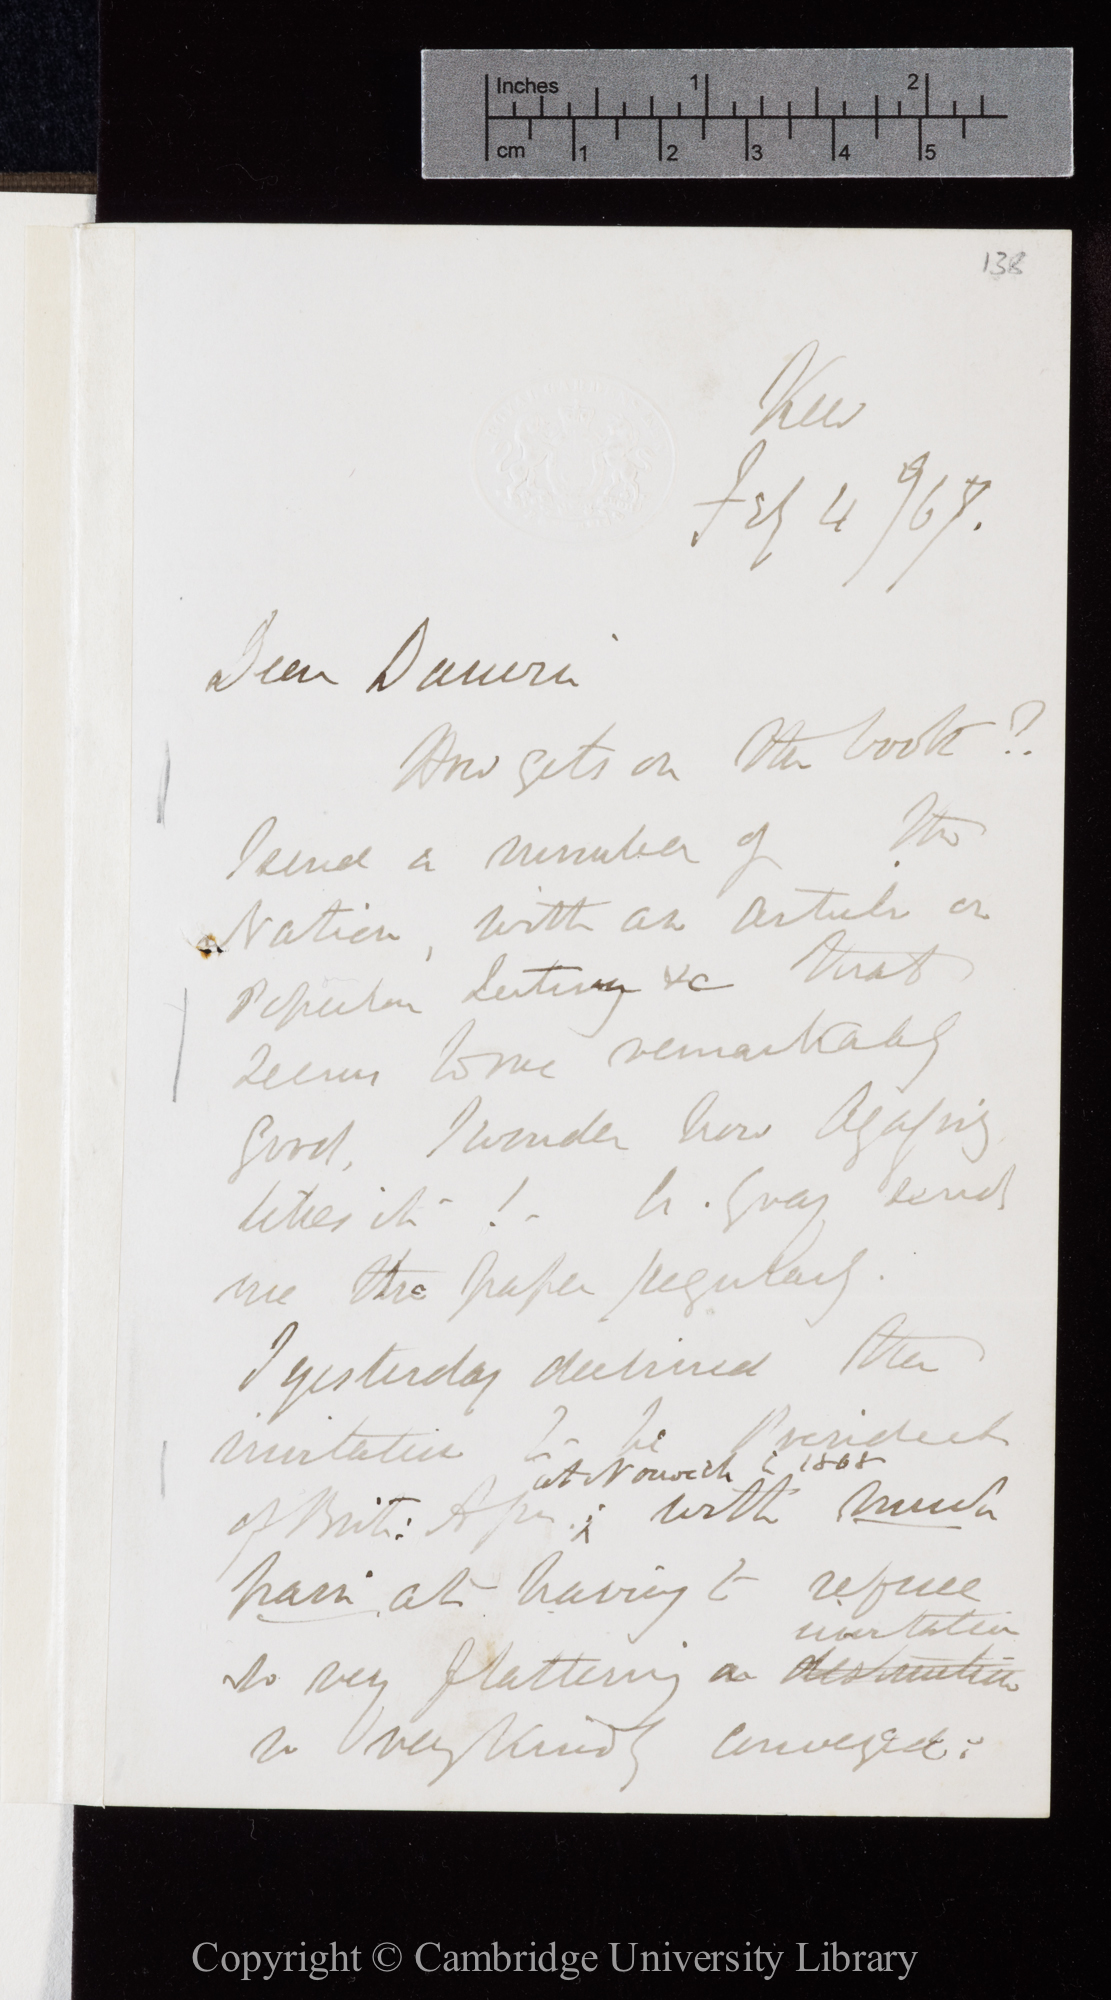 Inches 1 2
cm 1 2 3 4 5
138
Kew
Feby 4th/67.
Dear Darwin
How gets on the book?
I send a number of the
Nation, with an article on
Popular Lecturing &c that
seems to me remarkably
good, I wonder how Agassiz
likes it—!— A. Gray sends
me the paper regularly.
I yesterday declined the
invitation to be President
at Norwich i 1868
of Brit: Assn.; with much
pain at having to refuse
invitation
so very flattering a
so very kindly conveyed:
Copyright © Cambridge University Library